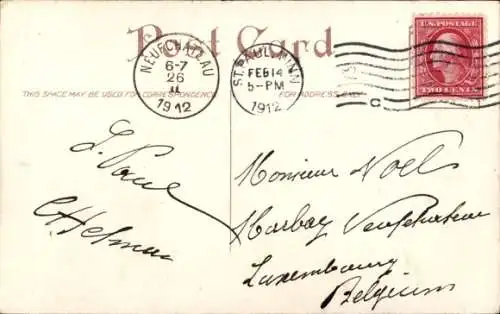 Post Card
NEUFCHATEAU
6-7
26
II
1912
ST. PAUL, MINN.
FEB 14
5-PM
1912
U.S. POSTAGE
TWO CENTS
THIS SPACE MAY BE USED FOR CORRESPONDENCE
FOR ADDRESS ONLY
C
St. Paul
Monsieur Noël
Marbay Neufchateau
Luxembourg
Belgium